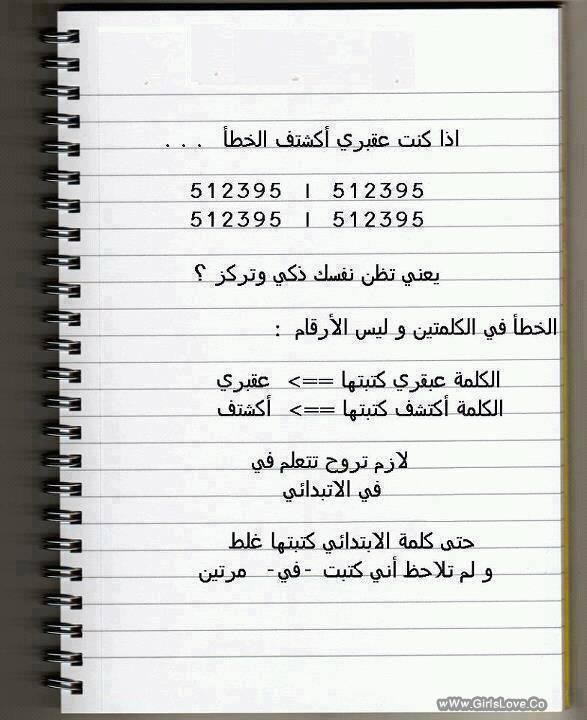 اذا كنت عقبري أكشتف الخطأ . . .
512395 | 512395
512395 | 512395
يعني تظن نفسك ذكي وتركز ؟
الخطأ في الكلمتين و ليس الأرقام :
الكلمة عبقري كتبتها ==> عقبري
الكلمة أكتشف كتبتها ==> أكشتف
لازم تروح تتعلم في
في الاتبدائي
حتى كلمة الابتدائي كتبتها غلط
و لم تلاحظ أني كتبت -في- مرتين
www.GirlsLove.Co